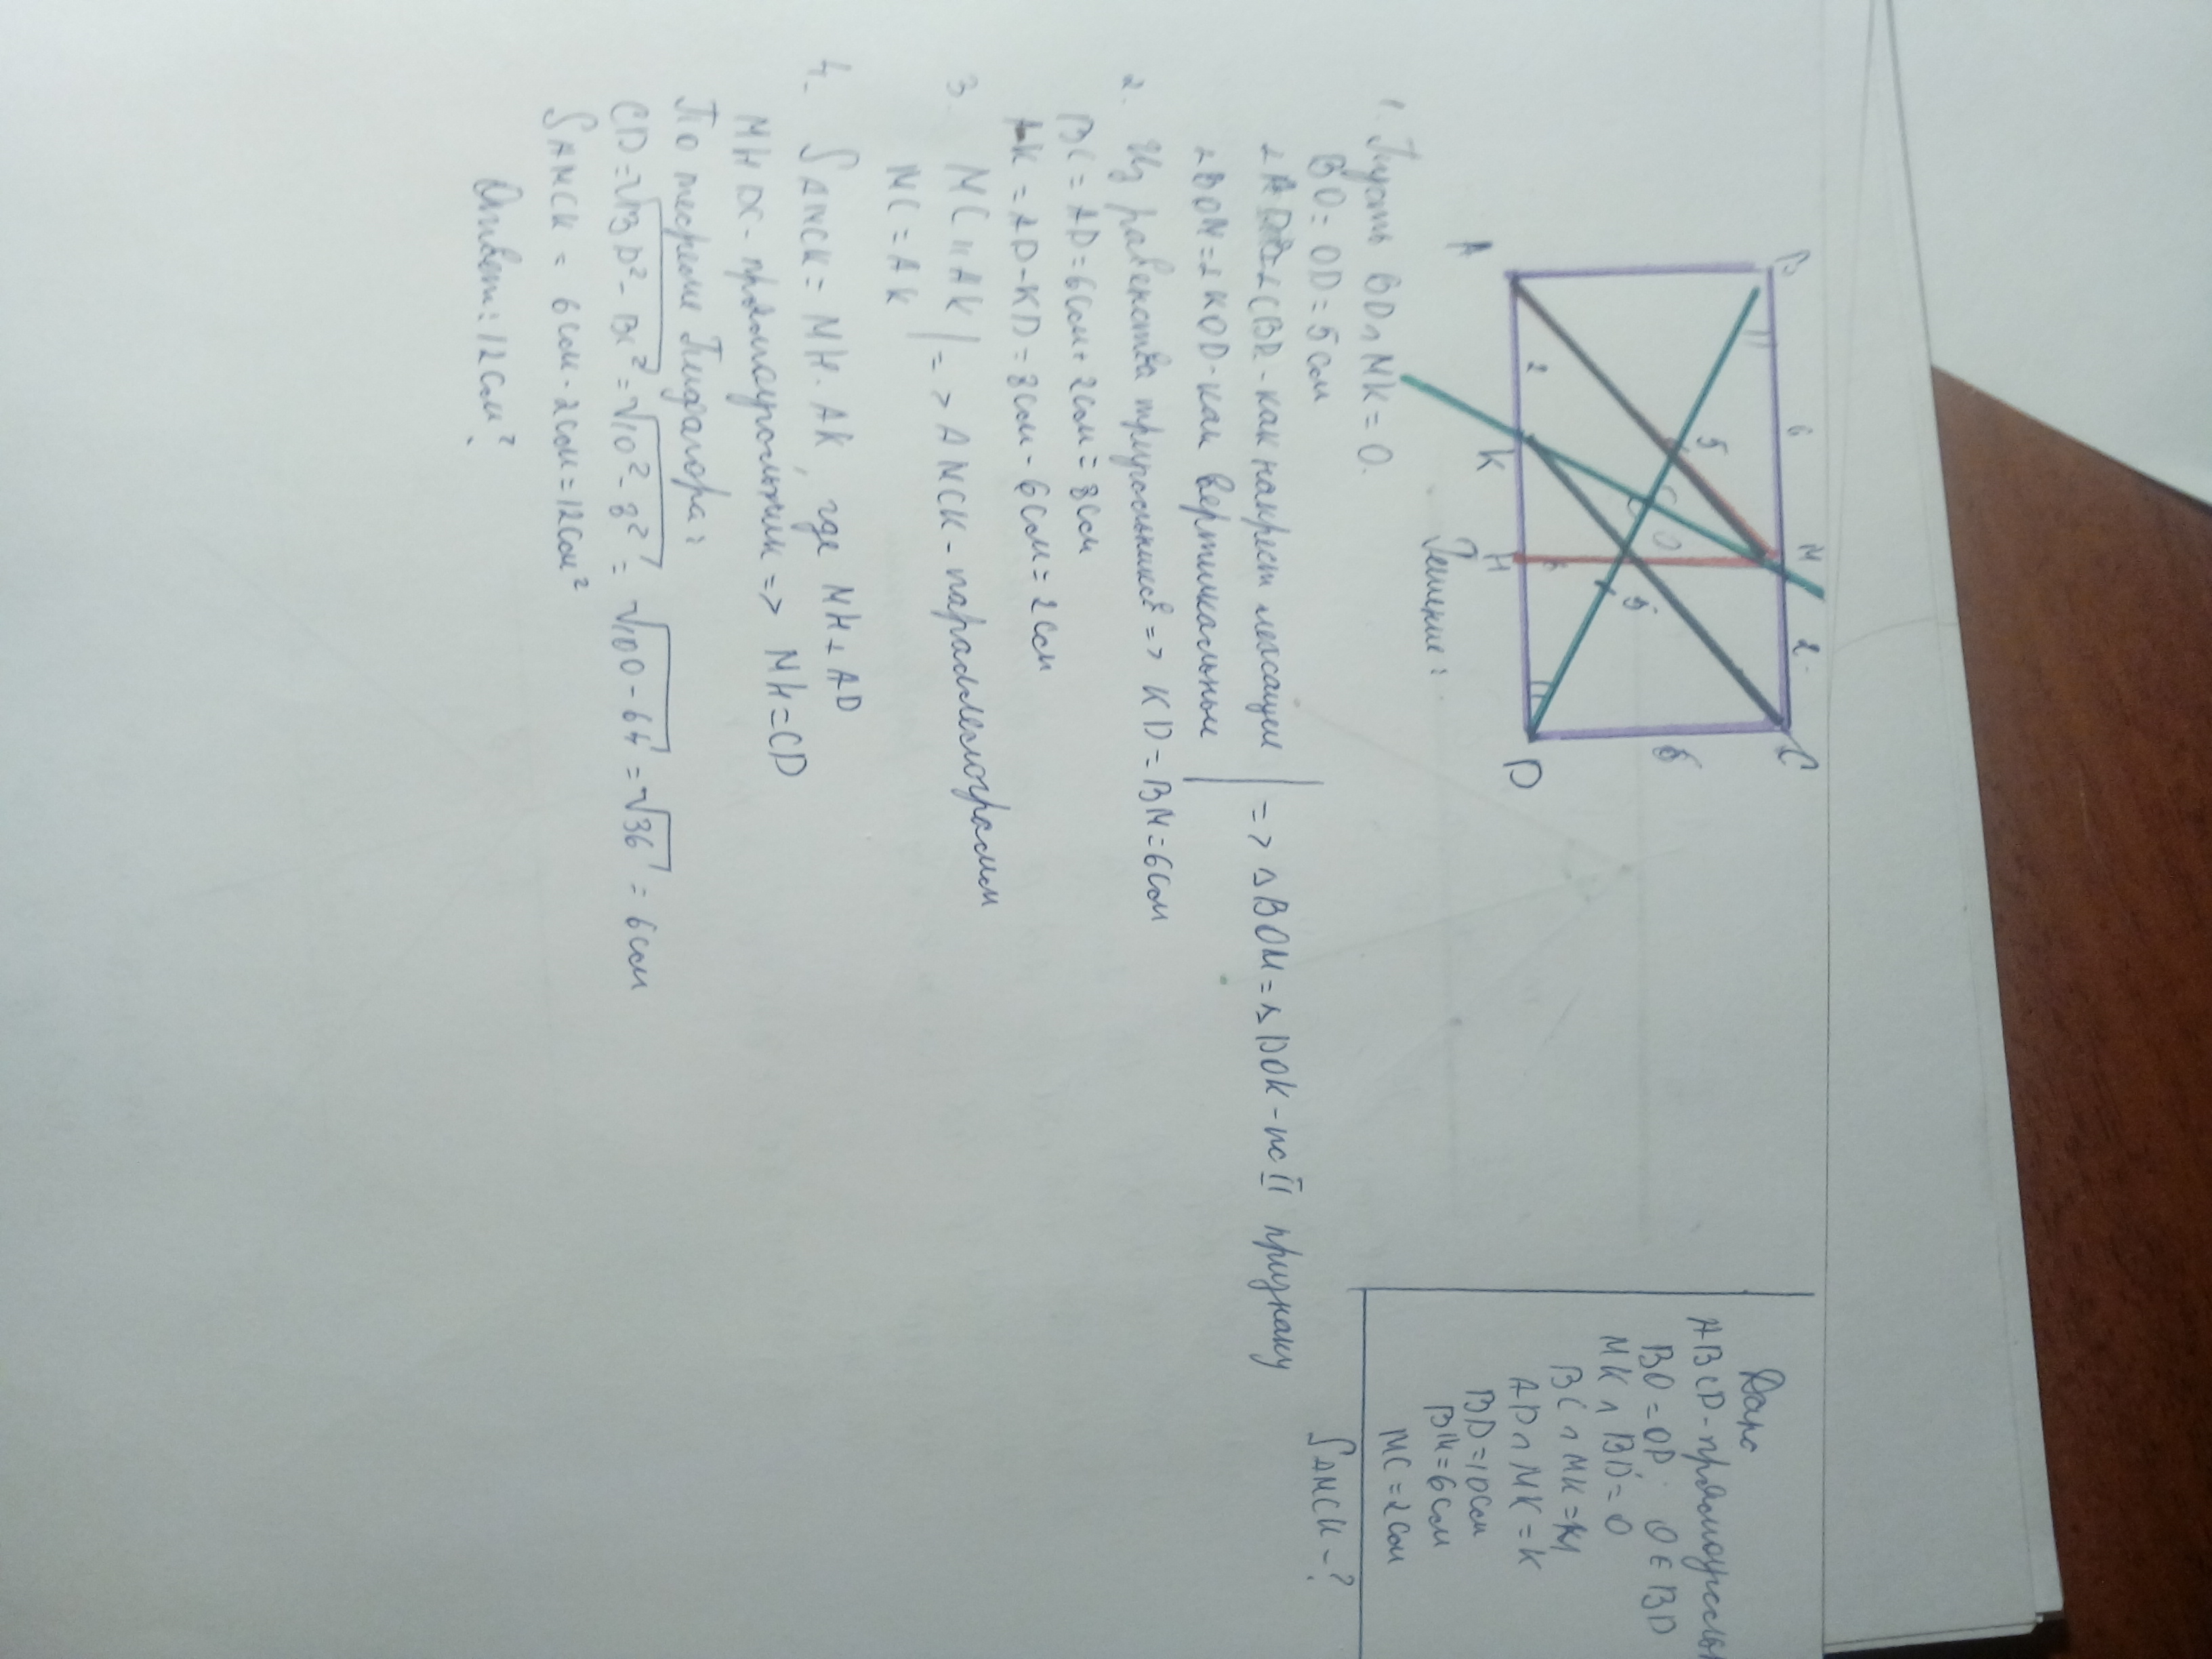 B
6
M
2
C
5
O
5
6
A
2
K
H
D
Дано
ABCD-прямоуголь
BO=OD; O∈BD
MK∩BD=O
BC∩MK=M
AD∩MK=K
BD=10см
BM=6см
MC=2см
SAMCK-?
Решение:
1. Пусть BD∩MK=O.
BO=OD=5см
∠CBD-как накрест лежащие
∠BOM=∠KOD-как вертикальные
=> △BOM=△DOK-по II признаку
2. Из равенства треугольников=> KD=BM=6см
BC=AD=6см+2см=8см
AK=AD-KD=8см-6см=2см
3. MC||AK
MC=AK
=> AMCK-параллелограмм
4. SAMCK=MH·AK, где MH⊥AD
MHDC-прямоугольник=> MH=CD
По теореме Пифагора:
CD=√BD²-BC²=√10²-8²=√100-64=√36=6см
SAMCK=6см·2см=12см²
Ответ:12см².